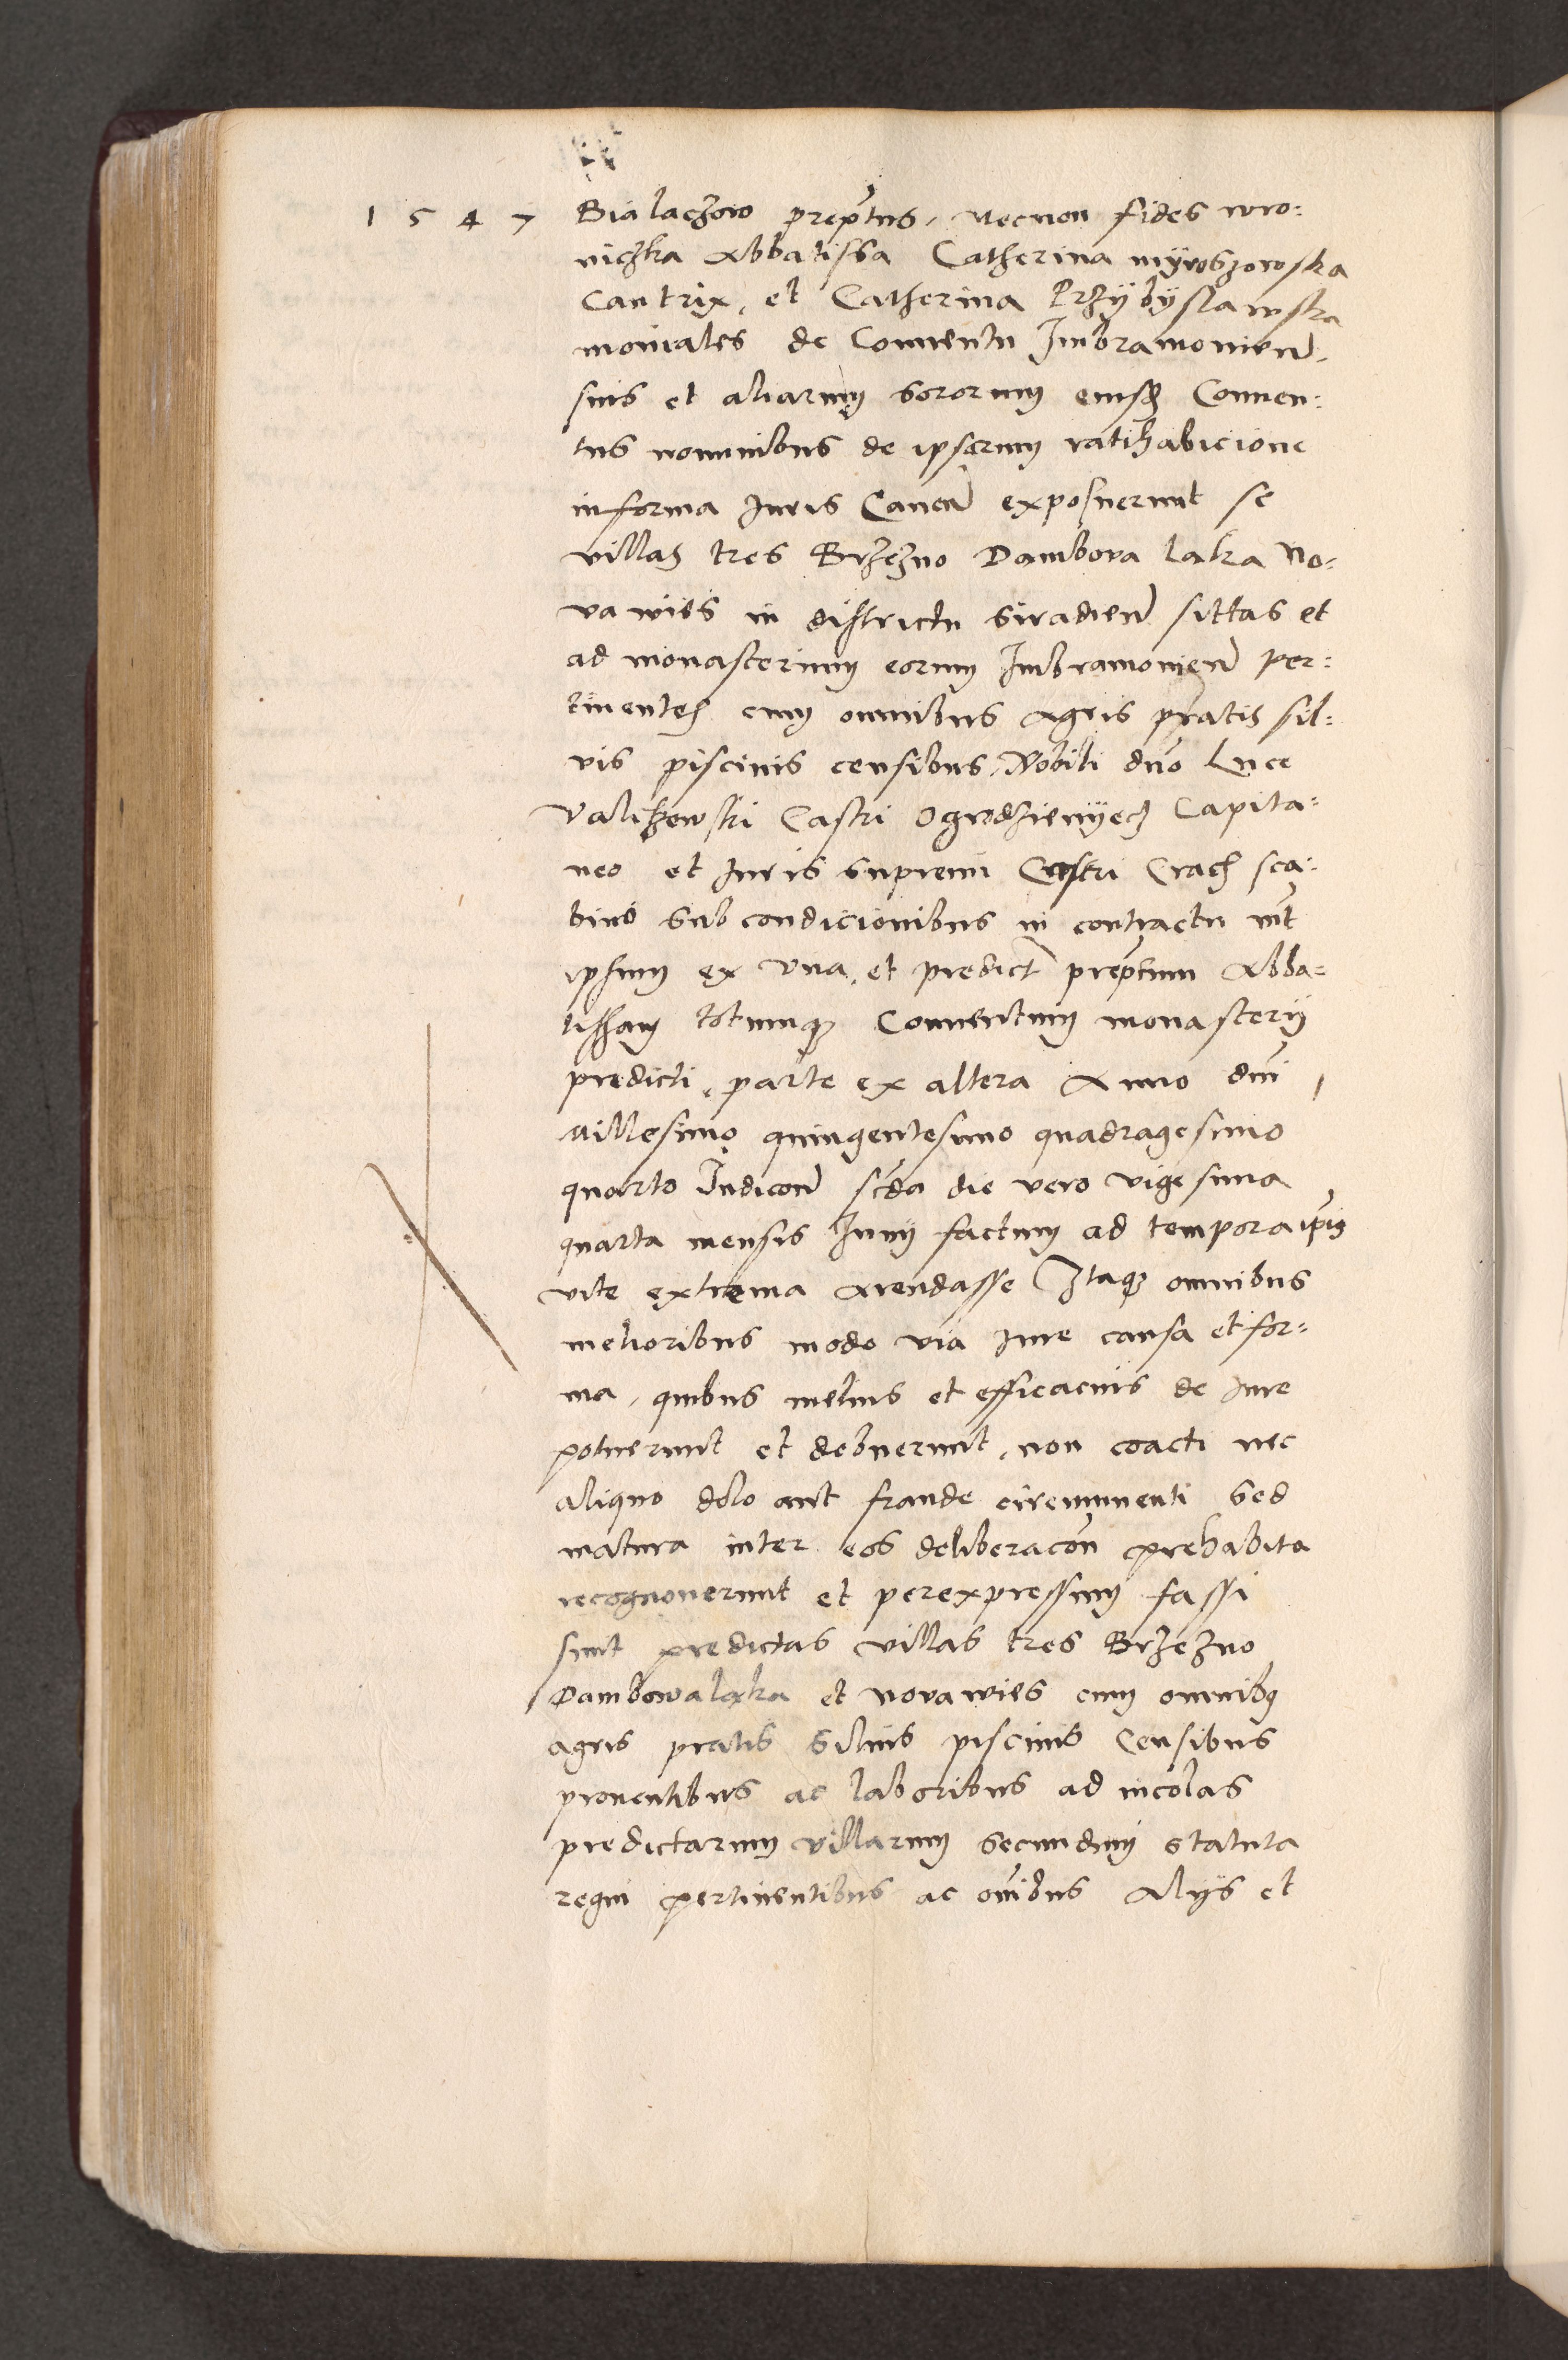 1547 Bialaczow prepͫtus, necnon fides wro:
niczka Abbatissa Catherina myroszowska
Cantrix, et Catherina Przÿbÿslawska
moniales de Conuentu Jmbramonien̄,
suis et aliarum sororum eiusdꝫ Conuen:
tus nominibus de ipsarum ratihabicione
in forma Juris Canen̄ exposuerunt se
villas tres Brzezno Dambova laka No:
va wies in districtu siradien̄ sittas et
ad monasterium eorum Jmbramonien̄ per:
tinentes cum omnibus Agris pratis sil:
vis piscinis censibus, Nobili dn̄o Luce
Valiszewski Castri Ogrodzienÿecz Capita:
neo et Juris supremi Castri Crac̄ sca:
bino sub condicionibus in contractu int̄
ipsum ex vna, et predict̄ prep̄tum Abba:
tissam totumqꝫ Conuentum monasterÿ
predicti, parte ex altera Anno dn̄i
Millesimo quingentesimo quadragesimo
quarto Jndicon̄ sc̄da die vero vigesima
quarta mensis Junÿ factum ad tempora ip̄ius
vite extrema Arendasse Itaqꝫ omnibus
melioribus modo via iure causa et for:
ma, quibus melius et efficacius de iure
potuerunt et debuerunt, non coacti nec
aliquo dolo aut fraude circumuenti sed
matura inter eos deliberacōn prehabita
recognouerunt et per expressum fassi
sunt predictas villas tres Brzezno
Dambowa laka et nova wies cum omnibꝫ
agris pratis siluis piscinis Censibus
prouentibus ac laboribus ad incolas
predictarum villarum secundum statuta
regni pertinentibus ac om̄ibus Alÿs et